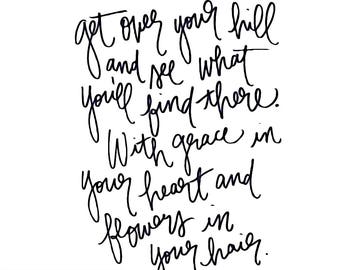 get over your hill
and see what
you'll find there.
With grace in
your heart and
flowers in
your hair.